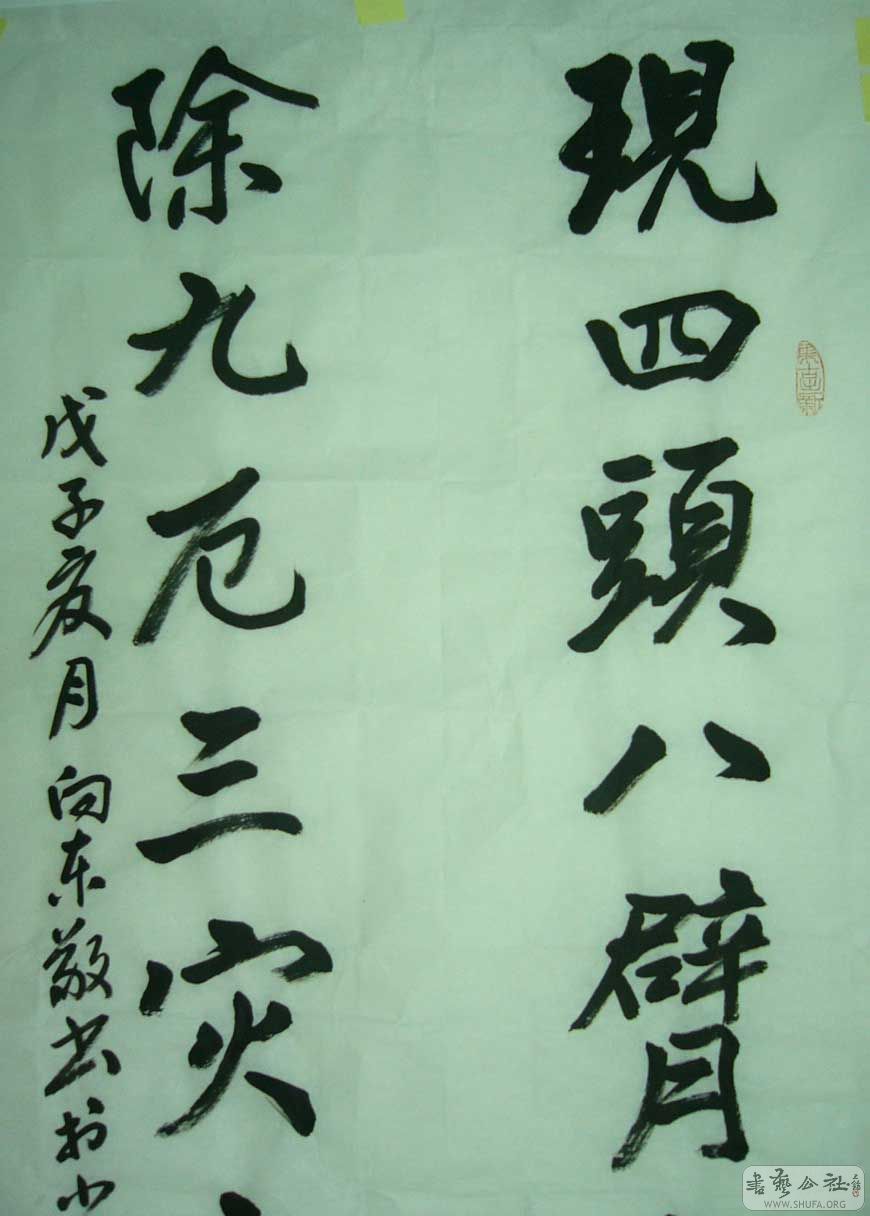 現四頭八臂
除九厄三灾
戊子夏月向东敬书于小
書藝公社
WWW.SHUFA.ORG